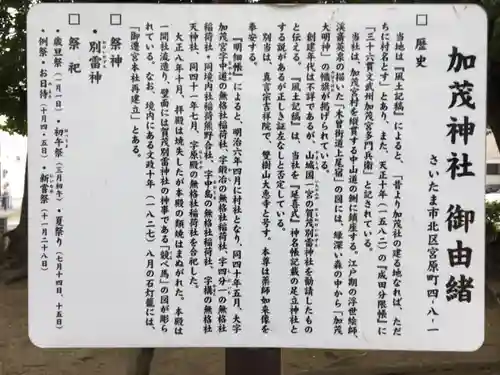 加茂神社 御由緒
さいたま市北区宮原町四-八-一
□ 歴史
当地は『風土記稿』によると、「昔より加茂社の建る地なれば、ただ
ちに村名とす」とあり、また、天正十年(一五八二)の『成田分限帳』に
「三十六貫文武州加茂宮多門兵衛」と記されている。
当社は、加茂宮村を縦貫する中山道の側に鎮座する。江戸期の浮世絵師、
渓斎英泉の描いた『木曽街道上尾宿』の図には、緑深い森の中から「加茂
大明神」の幟旗が掲げられている。
創建年代は不詳であるが、山城国一ノ宮の賀茂別雷神社を勧請したもの
と伝える。『風土記稿』は、当社を『延喜式』神名帳記載の足立神社と
する説があるが正しき証左なしと否定している。
別当は、真言宗吉祥院で、雙樹山大悲寺と号す。本尊は薬師如来像を
奉安する。
『明細帳』によると、明治六年四月に村社となり、同四十年五月、大字
加茂宮字中道の無格社稲荷社、字鍛冶の無格社稲荷社、字四分一の無格社
稲荷社・同境内社稲荷熊野合社、字中島の無格社稲荷社、字横の無格社
天神社、同四十一年七月、字原殿の無格社稲荷社を合祀した。
大正八年十月、拝殿は焼失したが本殿の類焼はまぬがれた。本殿は
一間社流造り、壁面には賀茂別雷神社の神事である「競べ馬」の図が彫ら
れている。なお、境内にある文政十年(一八二七)八月の石灯籠には、
「御遷宮本社再建立」とある。
□ 祭神
・別雷神
わけいかづちのかみ
□ 祭祀
・歳旦祭(一月一日)・初午祭(三月初午)・夏祭り(七月十四日、十五日)
・例祭・お日待(十月四・五日)・新嘗祭(十一月二十八日)